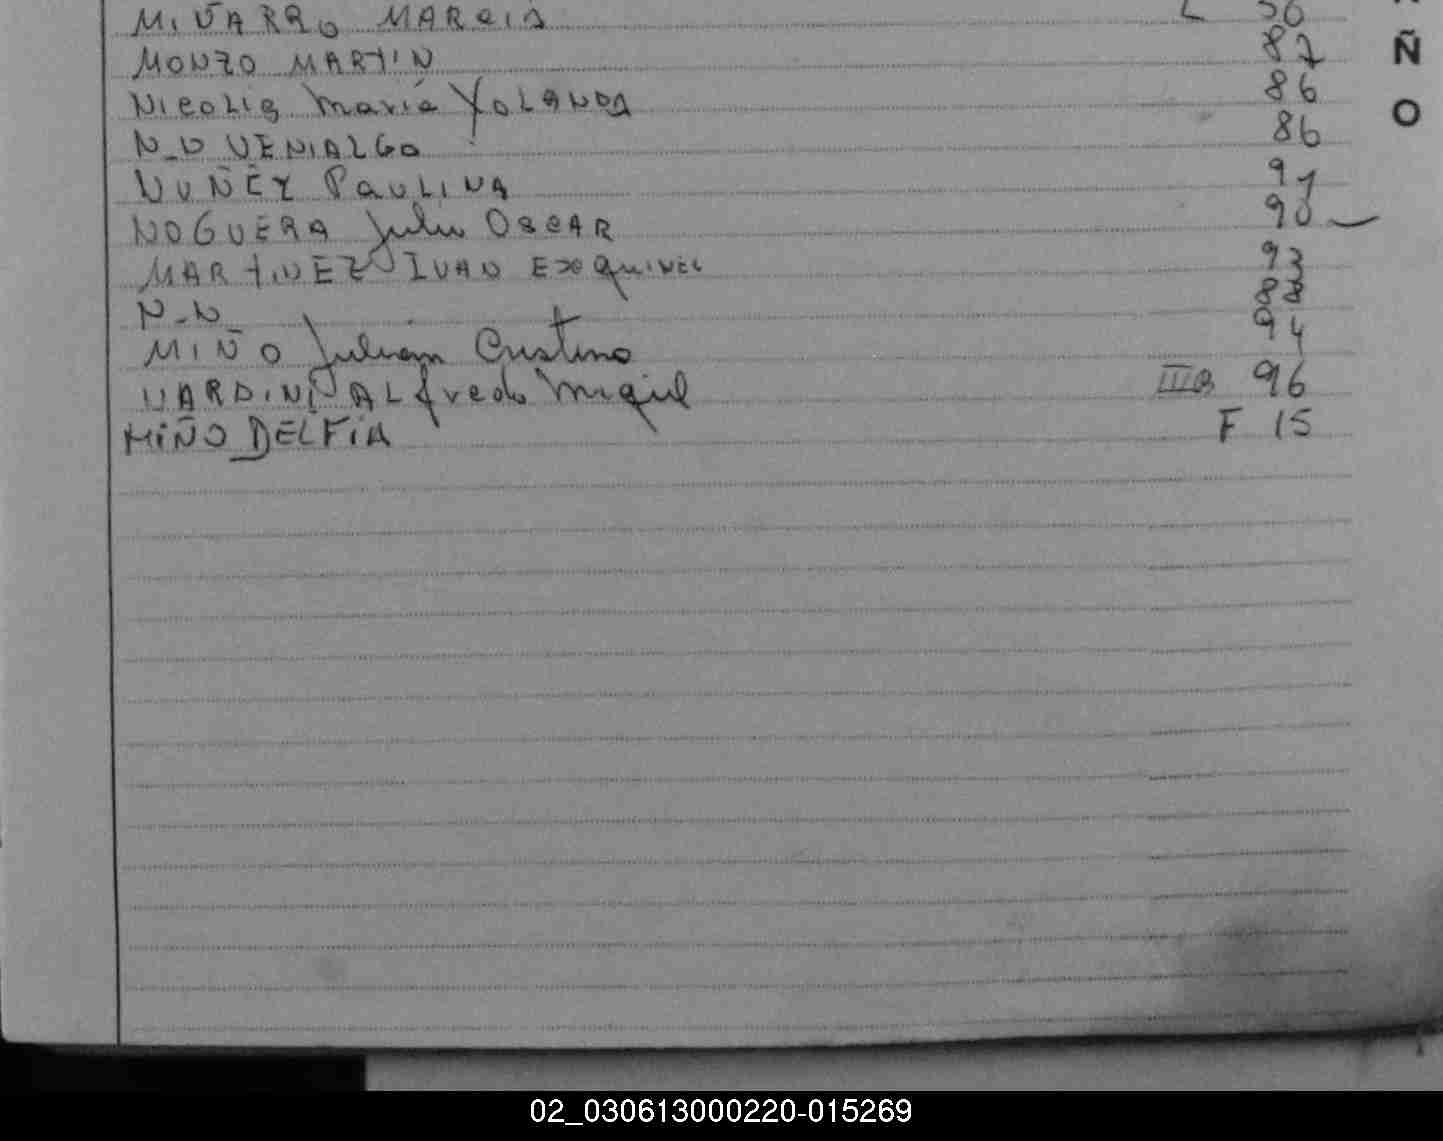 MARCIA L 56
MONZO MARTIN 87
Nicolis Maria YOLANDA 86
N-N VENIALGO 86
NUÑEZ PAULINA 91
NOGUERA Julio OSCAR 90
MARTINEZ IVAN EXEQUIVEL 93
N-N 88
MIÑO Julian Cristino 94
NARDINI ALfredo Miguel IIIB 96
MIÑO DELFIA F 15
Ñ
O
02_030613000220-015269